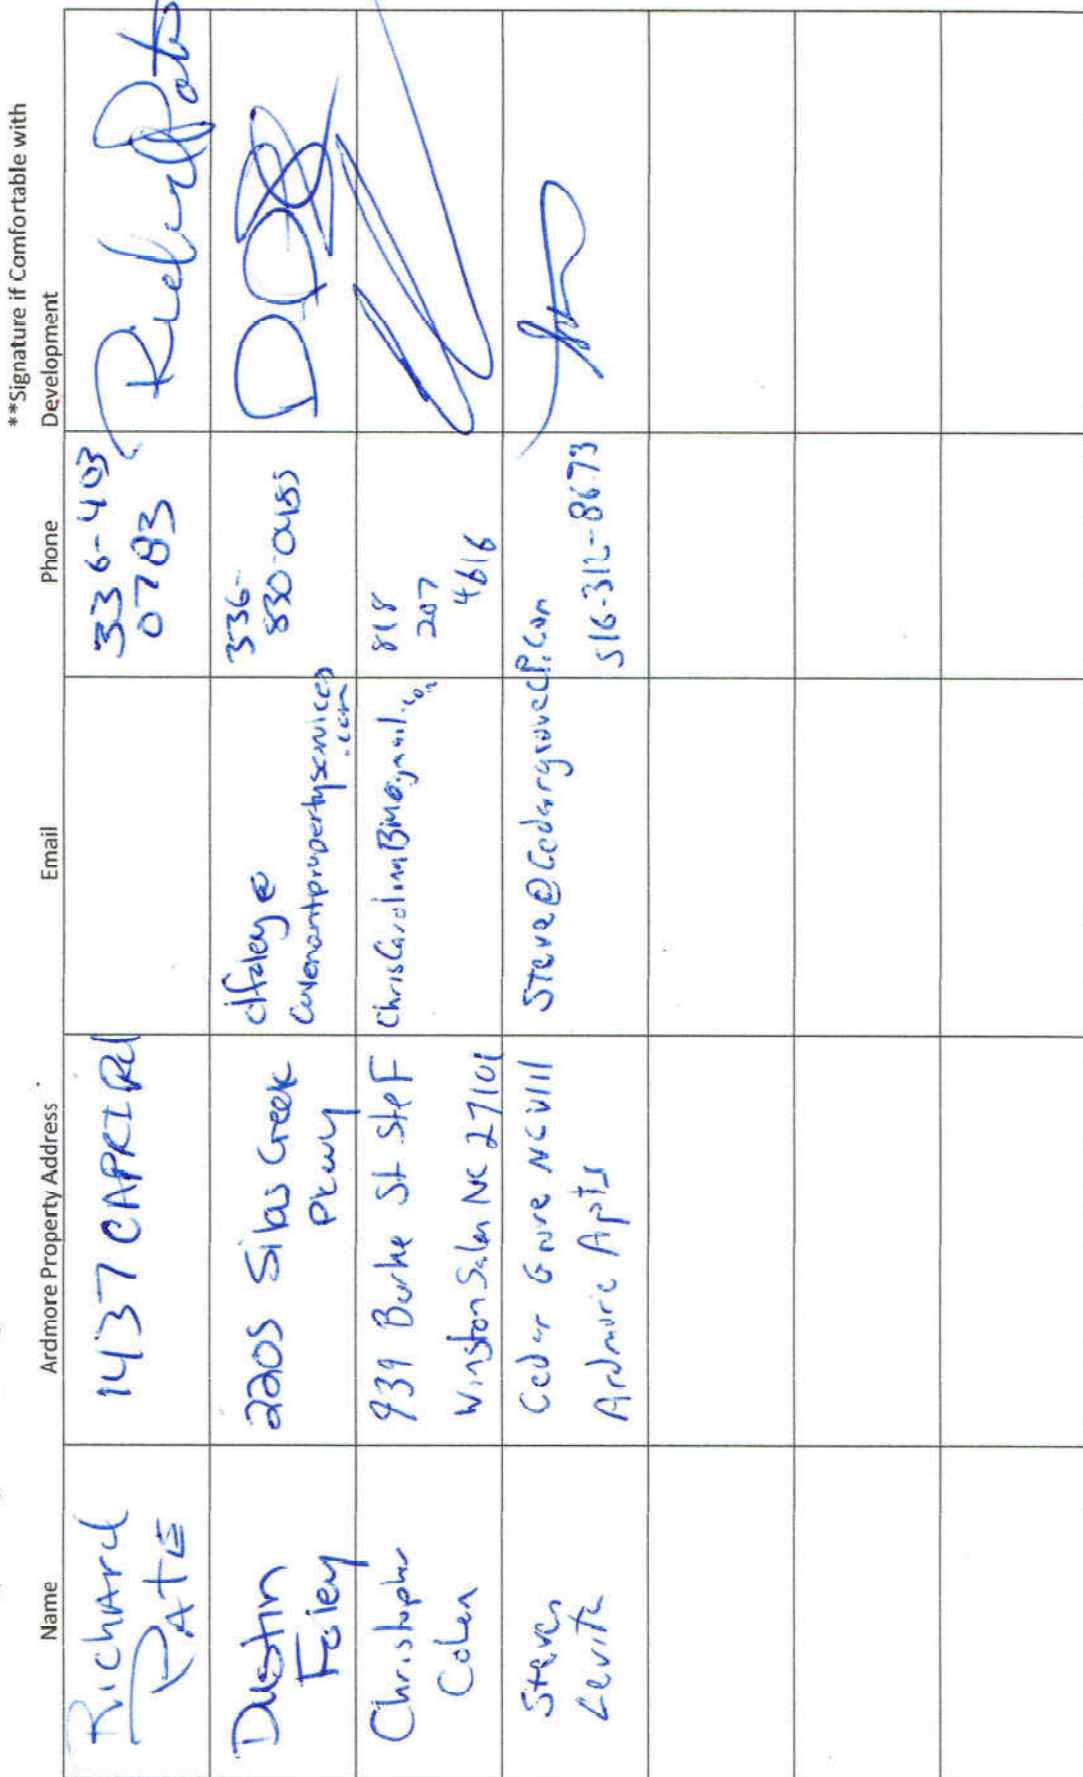 Name
Ardmore Property Address
Email
Phone
**Signature if Comfortable with
Development
Richard
Pate
1437 CAPRI Rd
336-403
0783
Richard Pate
Dustin
Foley
2205 Silas Creek
Pkwy
dfoley@
covenantpropertyservices
.com
336-
830-0485
Christopher
Cohen
939 Burke St Ste F
Winston Salem NC 27101
818
207
4616
Steven
Cedar Grove NC VIII
Ardmore Apts
Steve@CedargroveCP.com
516-312-8673